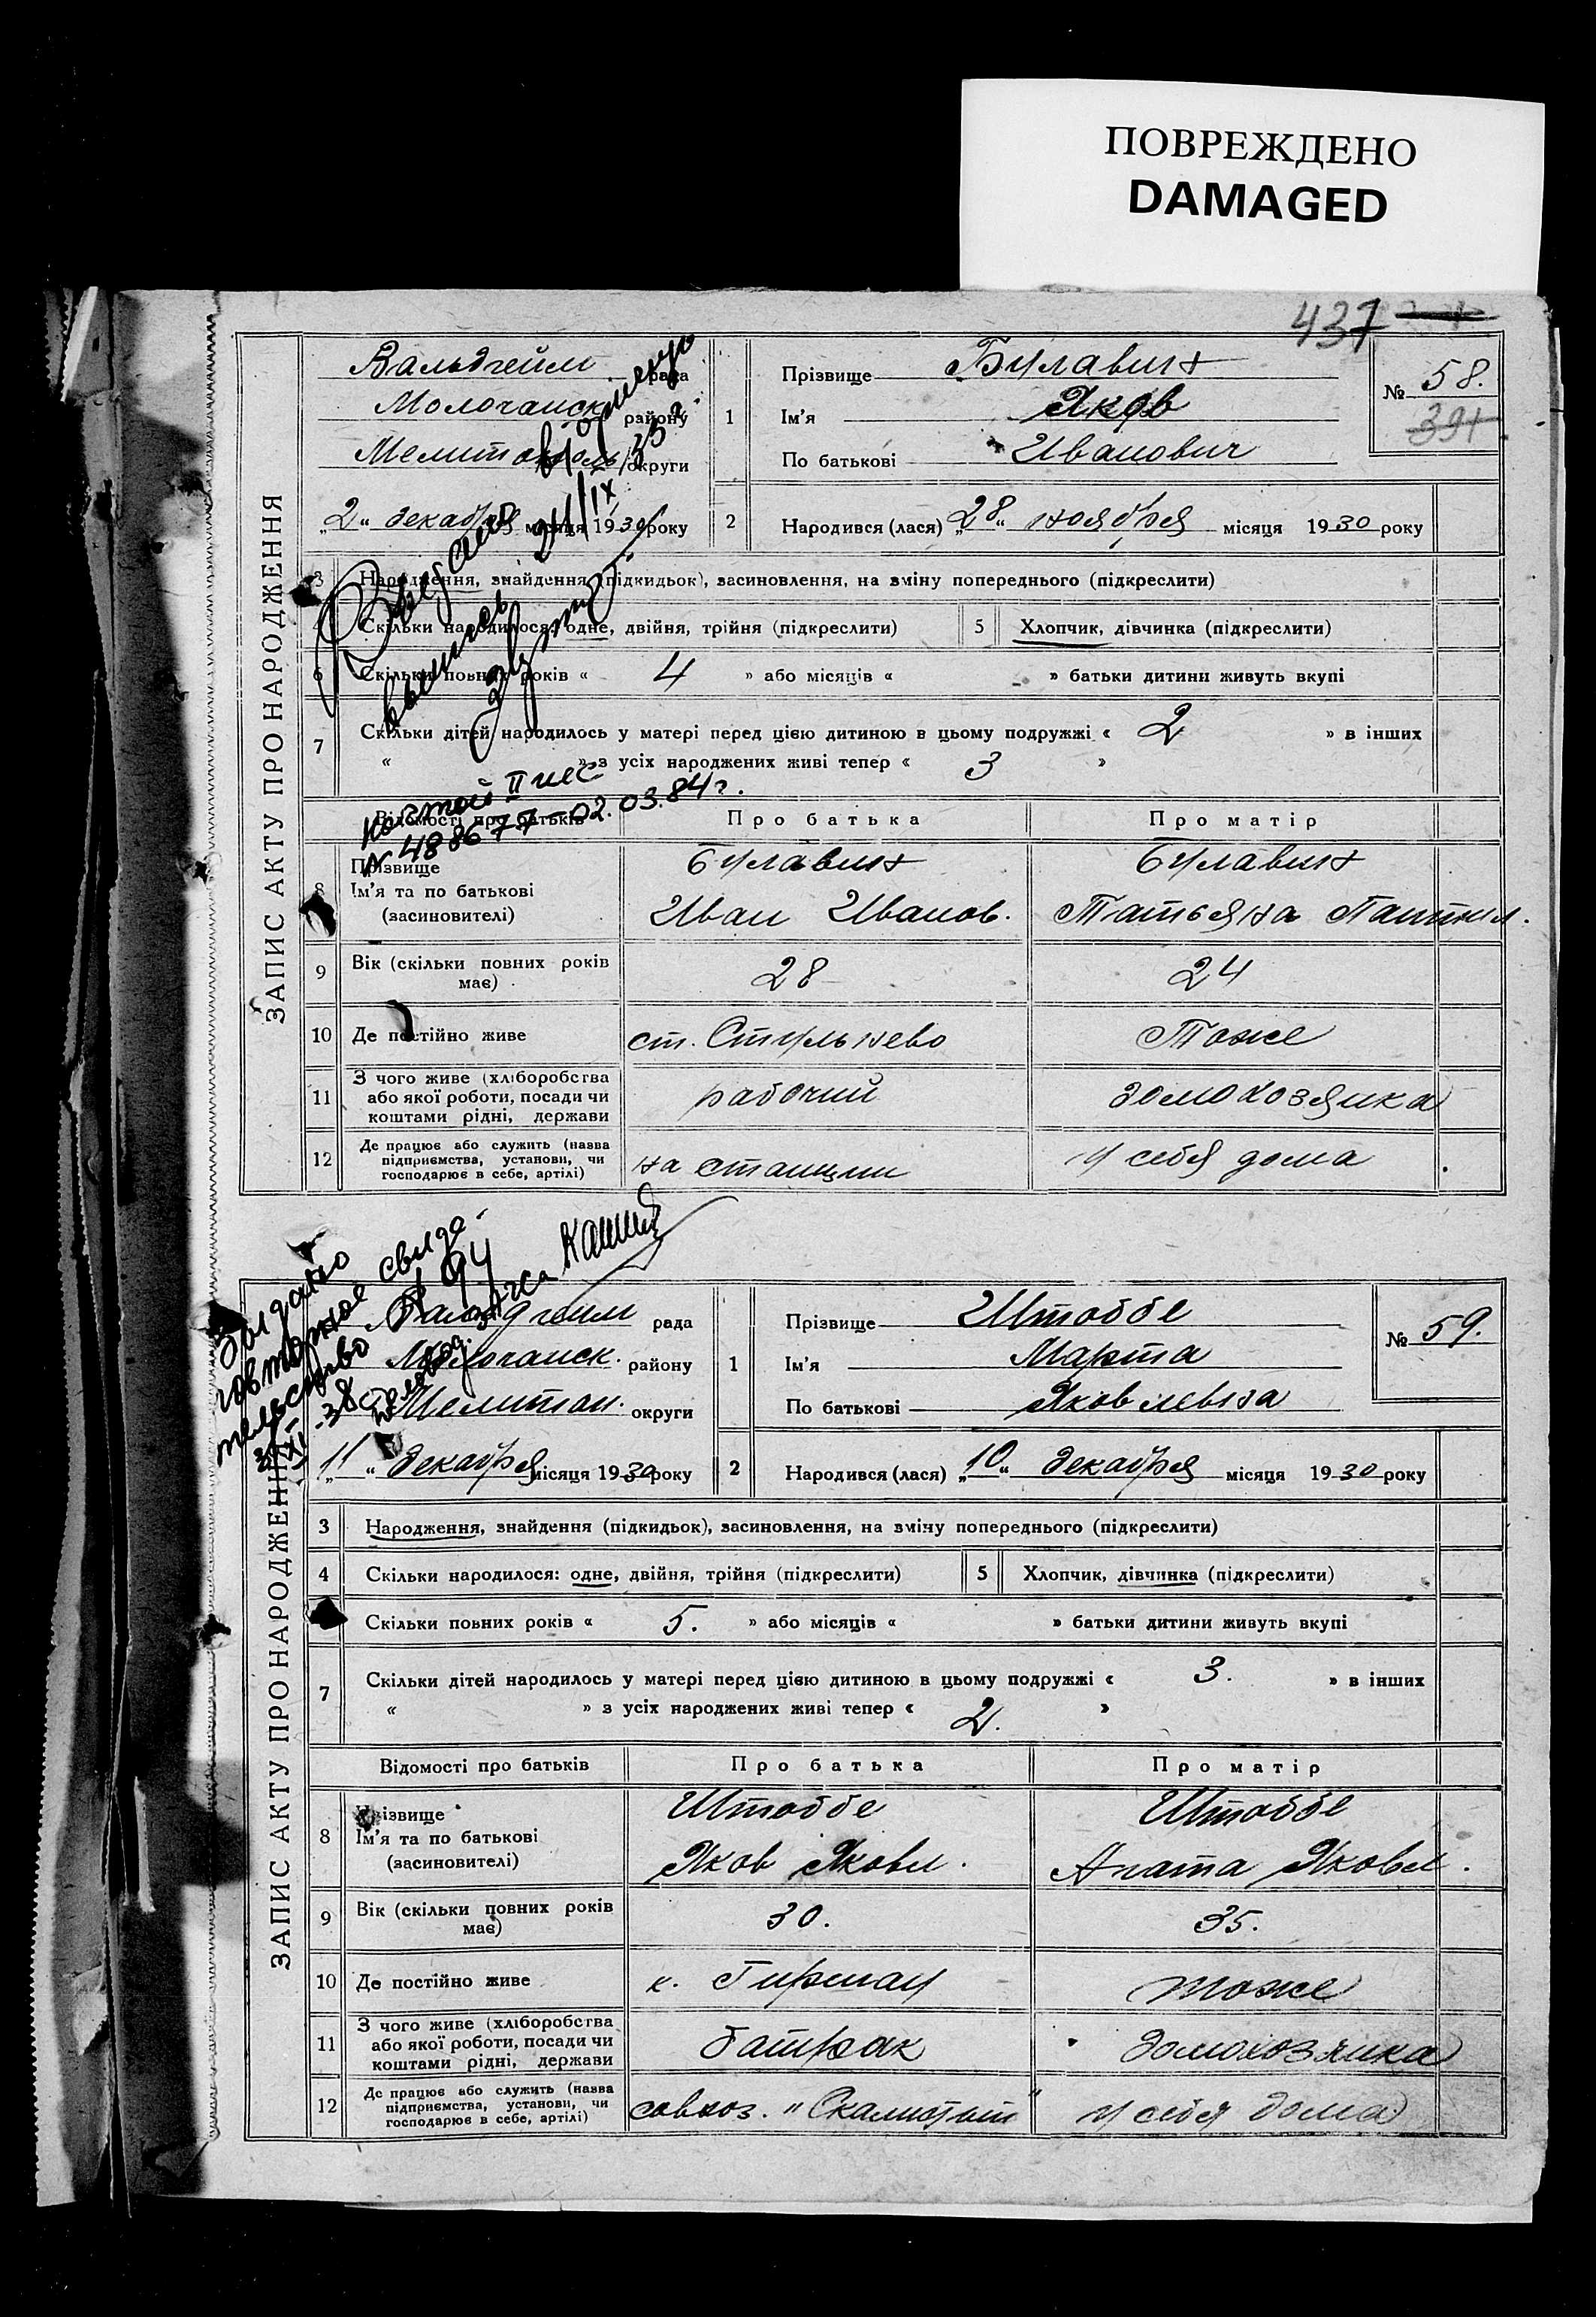 ПОВРЕЖДЕНО
DAMAGED
437
ЗАПИС АКТУ ПРО НАРОДЖЕННЯ
Вальдгейм рада
Молочанск району
Мелитополь округи
„2“ декабря місяця 1930 року
1 Прізвище Булавин
Ім'я Яков
По батькові Иванович
№ 58.
391
2 Народився (лася) „28“ ноября місяця 1930 року
3 Народження, знайдення (підкидьок), засиновлення, на зміну попереднього (підкреслити)
Скільки народилося: одне, двійня, трійня (підкреслити) 5 Хлопчик, дівчинка (підкреслити)
6 Скільки повних років « 4 » або місяців « - » батьки дитини живуть вкупі
7 Скільки дітей народилось у матері перед цією дитиною в цьому подружжі « 2 » в інших
« » з усіх народжених живі тепер « 3 »
повтор II
N 488677 - 02.03.84 г.
Відомості про батьків Про батька Про матір
8 Прізвище Булавин Булавин
Ім'я та по батькові
(засиновителі) Иван Иванов. Татьяна
9 Вік (скільки повних років має) 28 24
10 Де постійно живе ст. Стульнево Тоже
11 З чого живе (хліборобства або якої роботи, посади чи коштами рідні, держави рабочий домохозяика
12 Де працює або служить (назва підприємства, установи, чи господарює в себе, артілі) на станции у себя дома
Выдано
повторное свиде-
тельство
ЗАПИС АКТУ ПРО НАРОДЖЕННЯ
Вальдгеим рада
Молочанск. району
Мелитоп. округи
„11“ декабря місяця 1930 року
1 Прізвище Штоббе
Ім'я Марта
По батькові Яковлевна
№ 59.
2 Народився (лася) „10“ декабря місяця 1930 року
3 Народження, знайдення (підкидьок), засиновлення, на зміну попереднього (підкреслити)
4 Скільки народилося: одне, двійня, трійня (підкреслити) 5 Хлопчик, дівчинка (підкреслити)
Скільки повних років « 5. » або місяців « » батьки дитини живуть вкупі
7 Скільки дітей народилось у матері перед цією дитиною в цьому подружжі « 3. » в інших
« » з усіх народжених живі тепер « 2. »
Відомості про батьків Про батька Про матір
8 Прізвище Штоббе Штоббе
Ім'я та по батькові
(засиновителі) Яков Яковл. Агата Яковл.
9 Вік (скільки повних років має) 30. 35.
10 Де постійно живе к. Гиршау тоже
11 З чого живе (хліборобства або якої роботи, посади чи коштами рідні, держави батрак домохозяика
12 Де працює або служить (назва підприємства, установи, чи господарює в себе, артілі) совхоз. "Скалистый" у себя дома